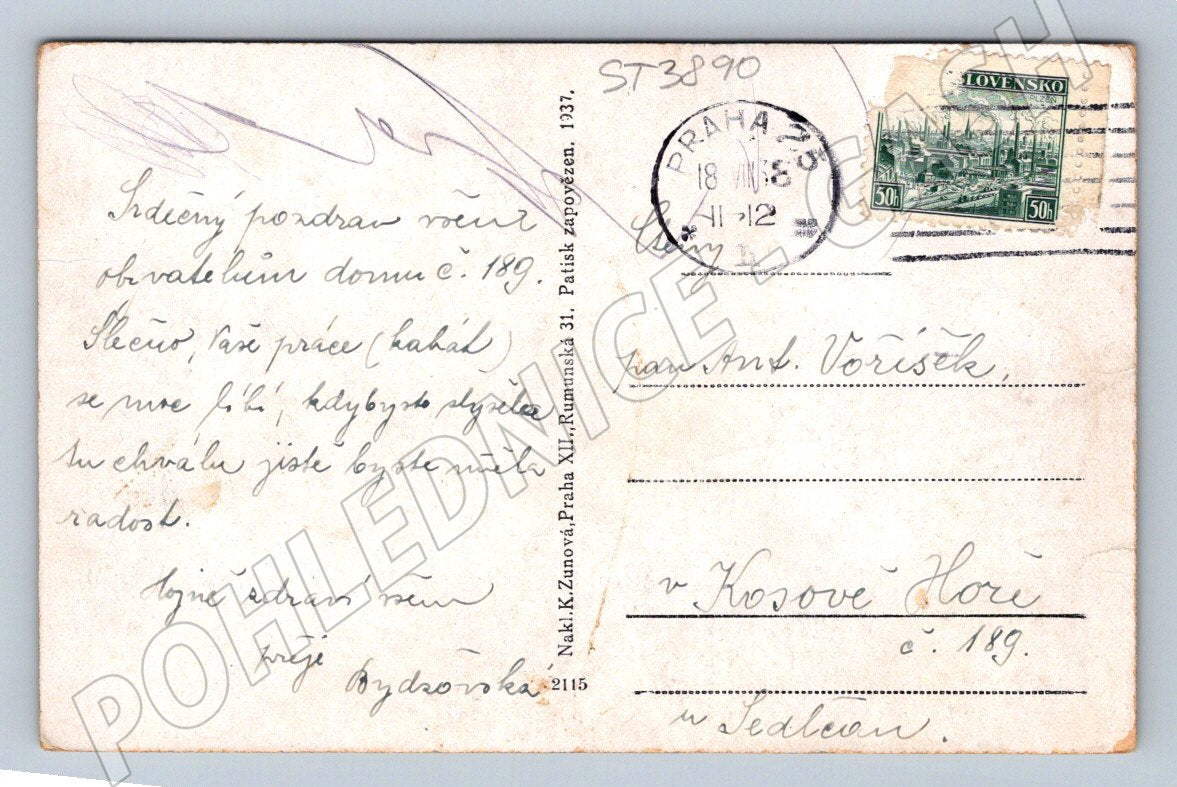 ST3890
PRAHA 25
18 VIII 38
11-12
SLOVENSKO
PLZEŇ
50h 50h
Srdečný pozdrav všem
obyvatelům domu č. 189.
Slečno, Vaše práce (kabát)
se moc líbí, kdybyste slyšela
tu chválu jistě byste měla
radost.
hojně zdraví všem
přeje
Bydžovská
Nakl. K. Zunová, Praha XII., Rumunská 31. Patisk zapovězen. 1937.
2115
Ctěný
pan Ant. Voříšek,
v Kosově Hoře
č. 189.
u Sedlčan.
POHLEDNICE-CACH